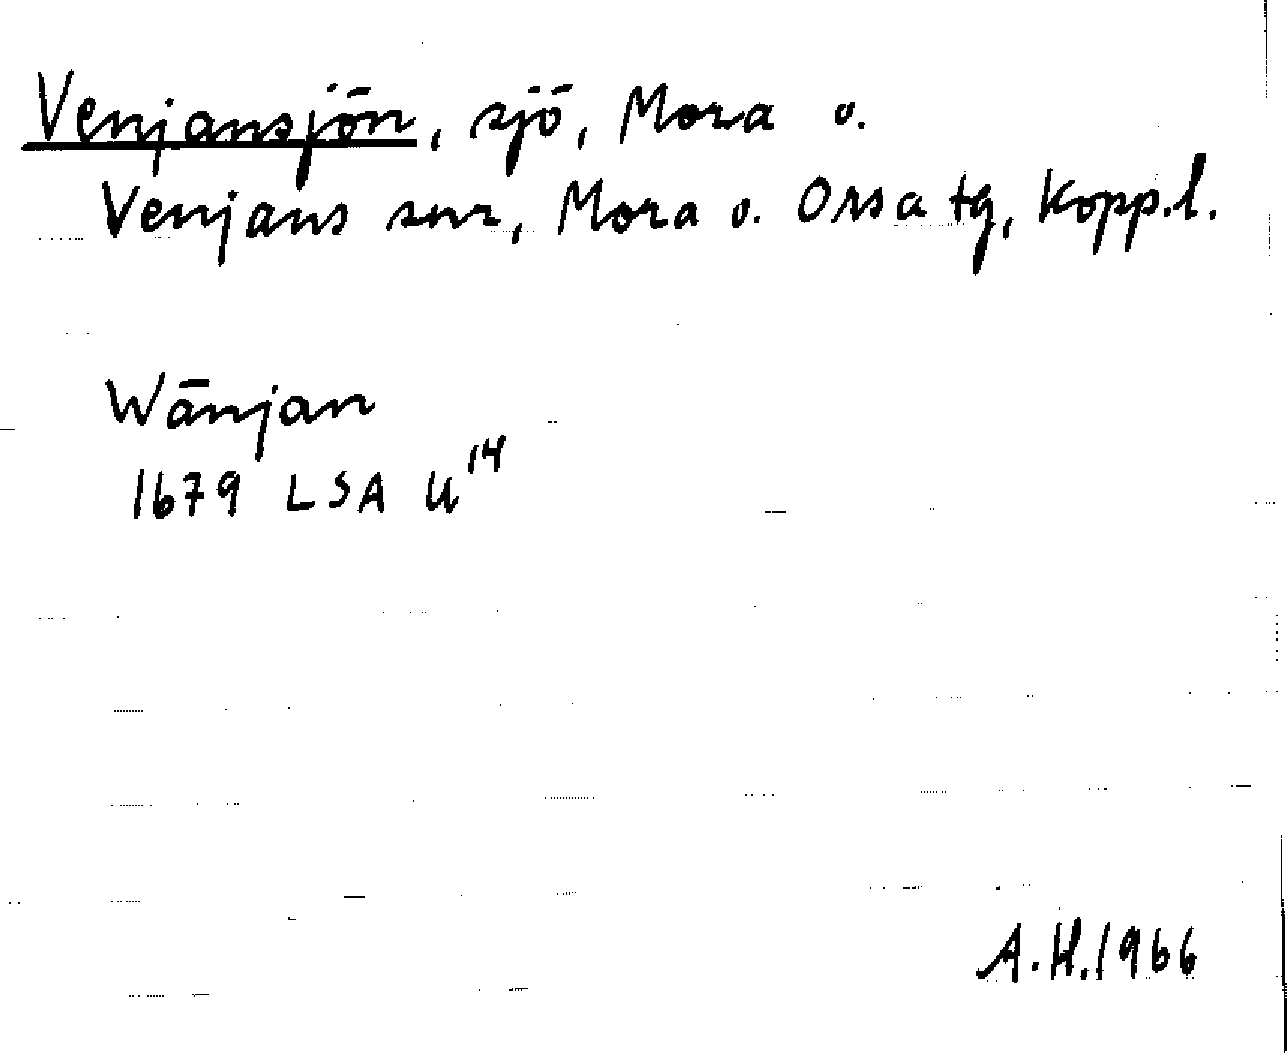 Venjansjön, sjö, Mora o.
Venjans snr, Mora o. Orsa tg, Kopp.l.
Wänjan
1679 LSA U¹⁴
A.H. 1966